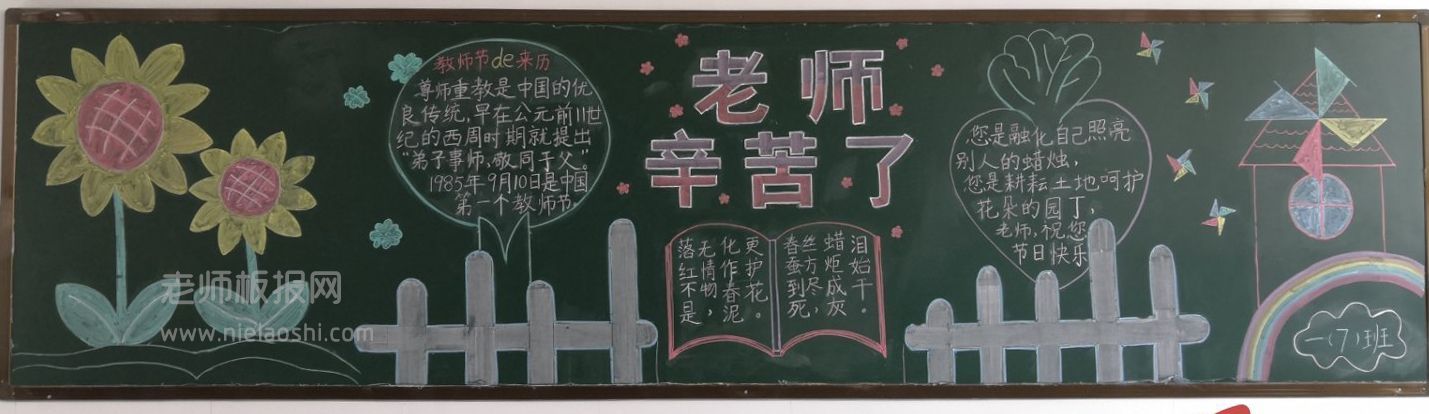 教师节de来历
尊师重教是中国的优
良传统,早在公元前11世
纪的西周时期就提出
“弟子事师,敬同于父”。
1985年9月10日是中国
第一个教师节。
老师
辛苦了
落红不是,
无情物,
化作春泥。
更护花。
春蚕到死,
丝方尽,
蜡炬成灰
泪始干。
您是融化自己照亮
别人的蜡烛,
您是耕耘土地呵护
花朵的园丁,
老师,祝您
节日快乐
一(7)班
老师板报网
www.nielaoshi.com